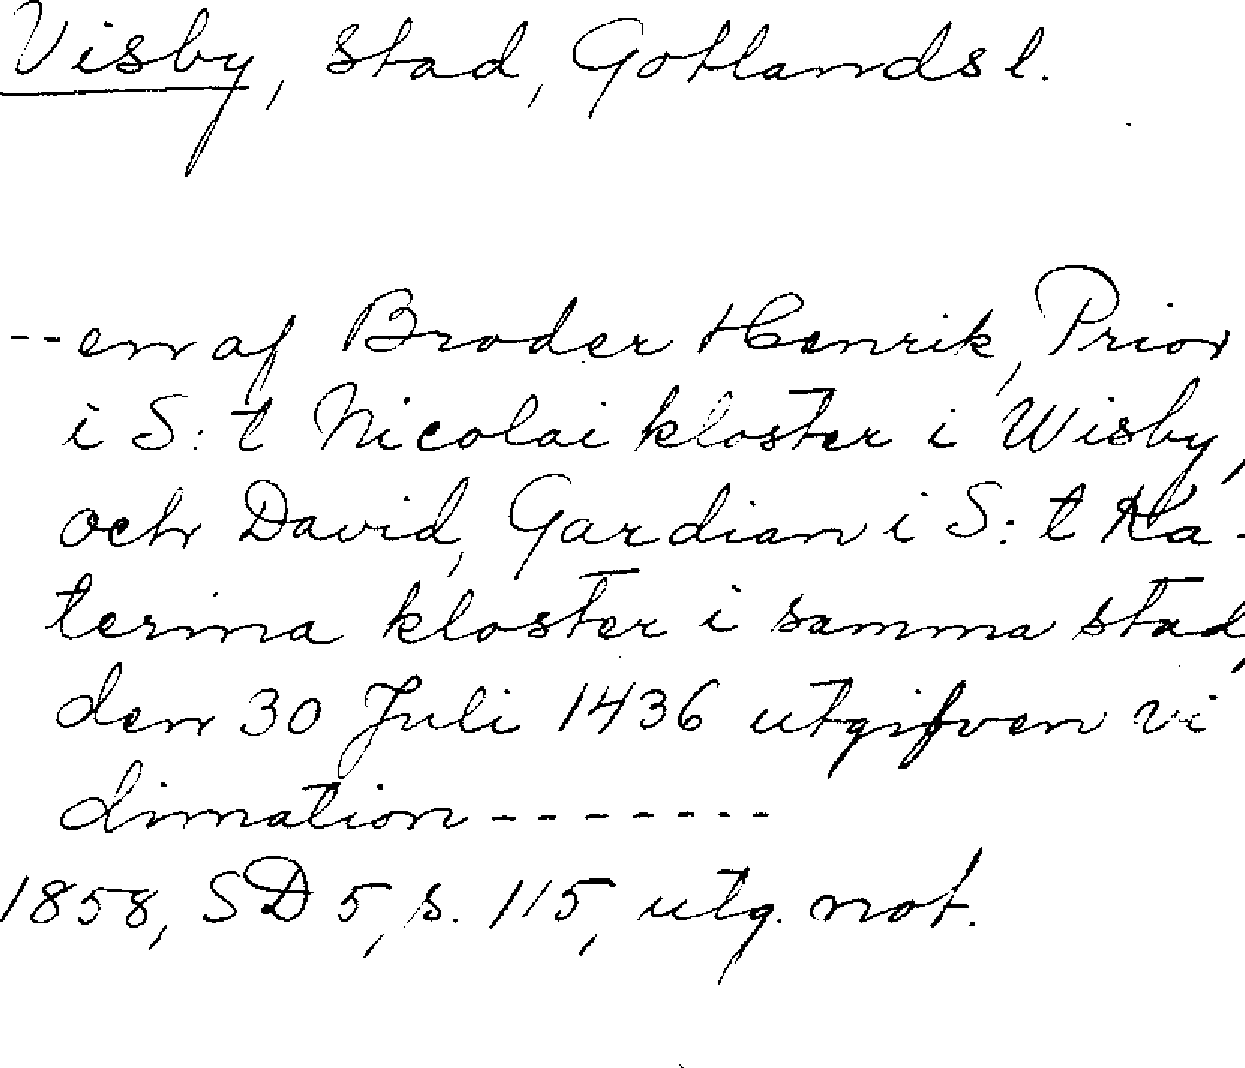 Visby, stad, Gotlands l.
--en af Broder Henrik, Prior
i S:t Nicolai kloster i Wisby,
och David, Gardian i S:t Ka-
terina kloster i samma stad,
den 30 Juli 1436 utgifven vi
dimation-------
1858, SD 5, s. 115, utg. not.